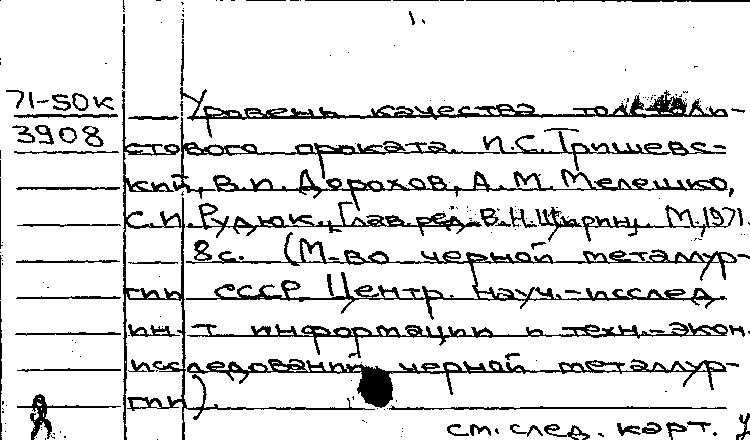 1.
71-50к Уровень качества толстоли-
3908 стового проката. И.С. Тришевс-
кий, В.П. Дорохов, А.М. Мелешко,
С.И. Рудюк. [Глав. ред. В.Н. Ширин]. М., 1971.
8 с. (М-во черной металлур-
гии СССР. Центр. науч.-исслед.
ин-т информации и техн.-экон.
исследований черной металлур-
гии).
см. след. карт. у